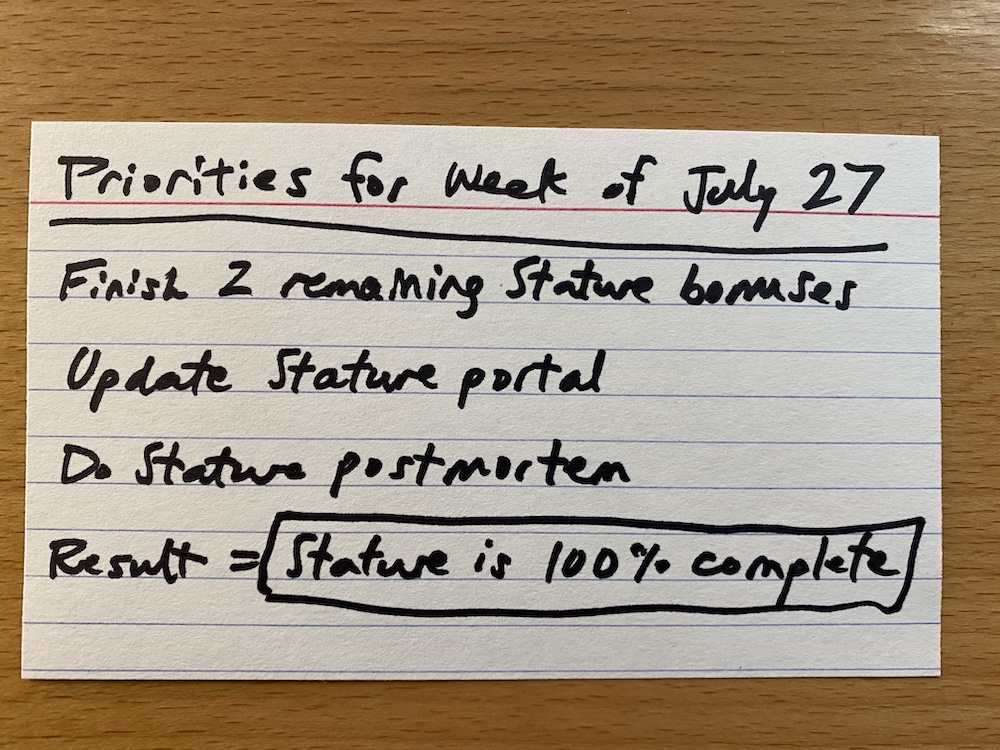 Priorities for Week of July 27
Finish 2 remaining Stature bonuses
Update Stature portal
Do Stature postmortem
Result = Stature is 100% complete